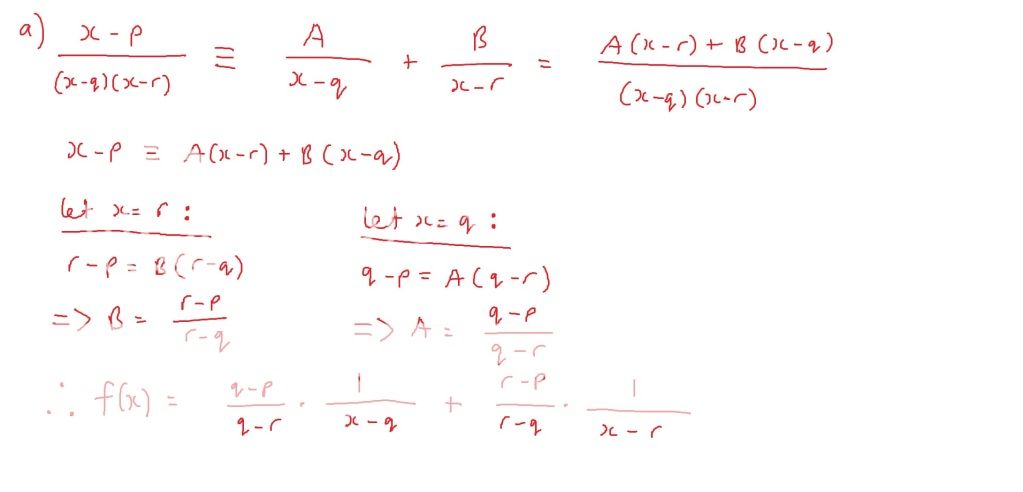 a) (x-p)/((x-q)(x-r)) ≡ A/(x-q) + B/(x-r) = (A(x-r)+B(x-q))/((x-q)(x-r))
x-p ≡ A(x-r)+B(x-q)
let x=r: let x=q:
r-p=B(r-q) q-p=A(q-r)
=> B = (r-p)/(r-q) => A = (q-p)/(q-r)
∴ f(x) = (q-p)/(q-r) · 1/(x-q) + (r-p)/(r-q) · 1/(x-r)